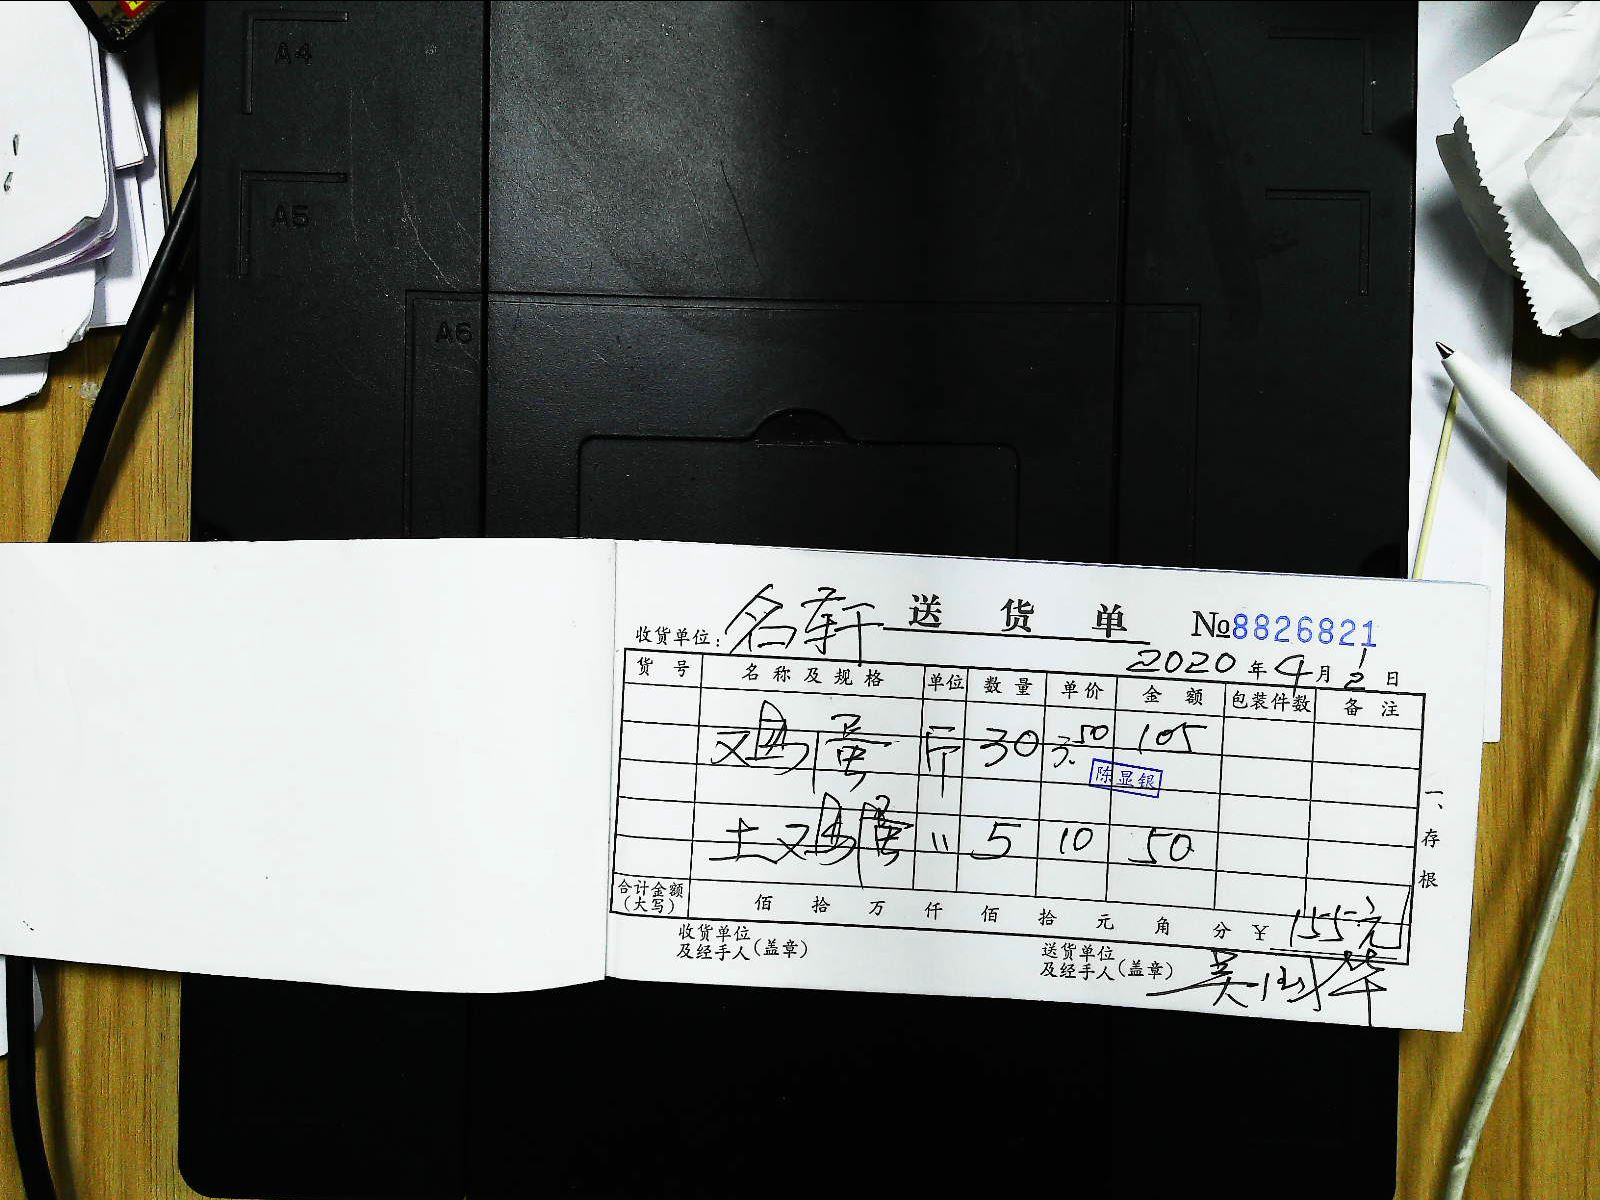 A4
A5
A6
送货单 №8826821
收货单位：名轩
2020年4月12日
货号 名称及规格 单位 数量 单价 金额 包装件数 备注
鸡蛋 斤 30 3.50 105
陈显银
土鸡蛋 〃 5 10 50
合计金额（大写） 佰 拾 万 仟 佰 拾 元 角 分 ¥155元
收货单位及经手人（盖章）
送货单位及经手人（盖章）
一、存根